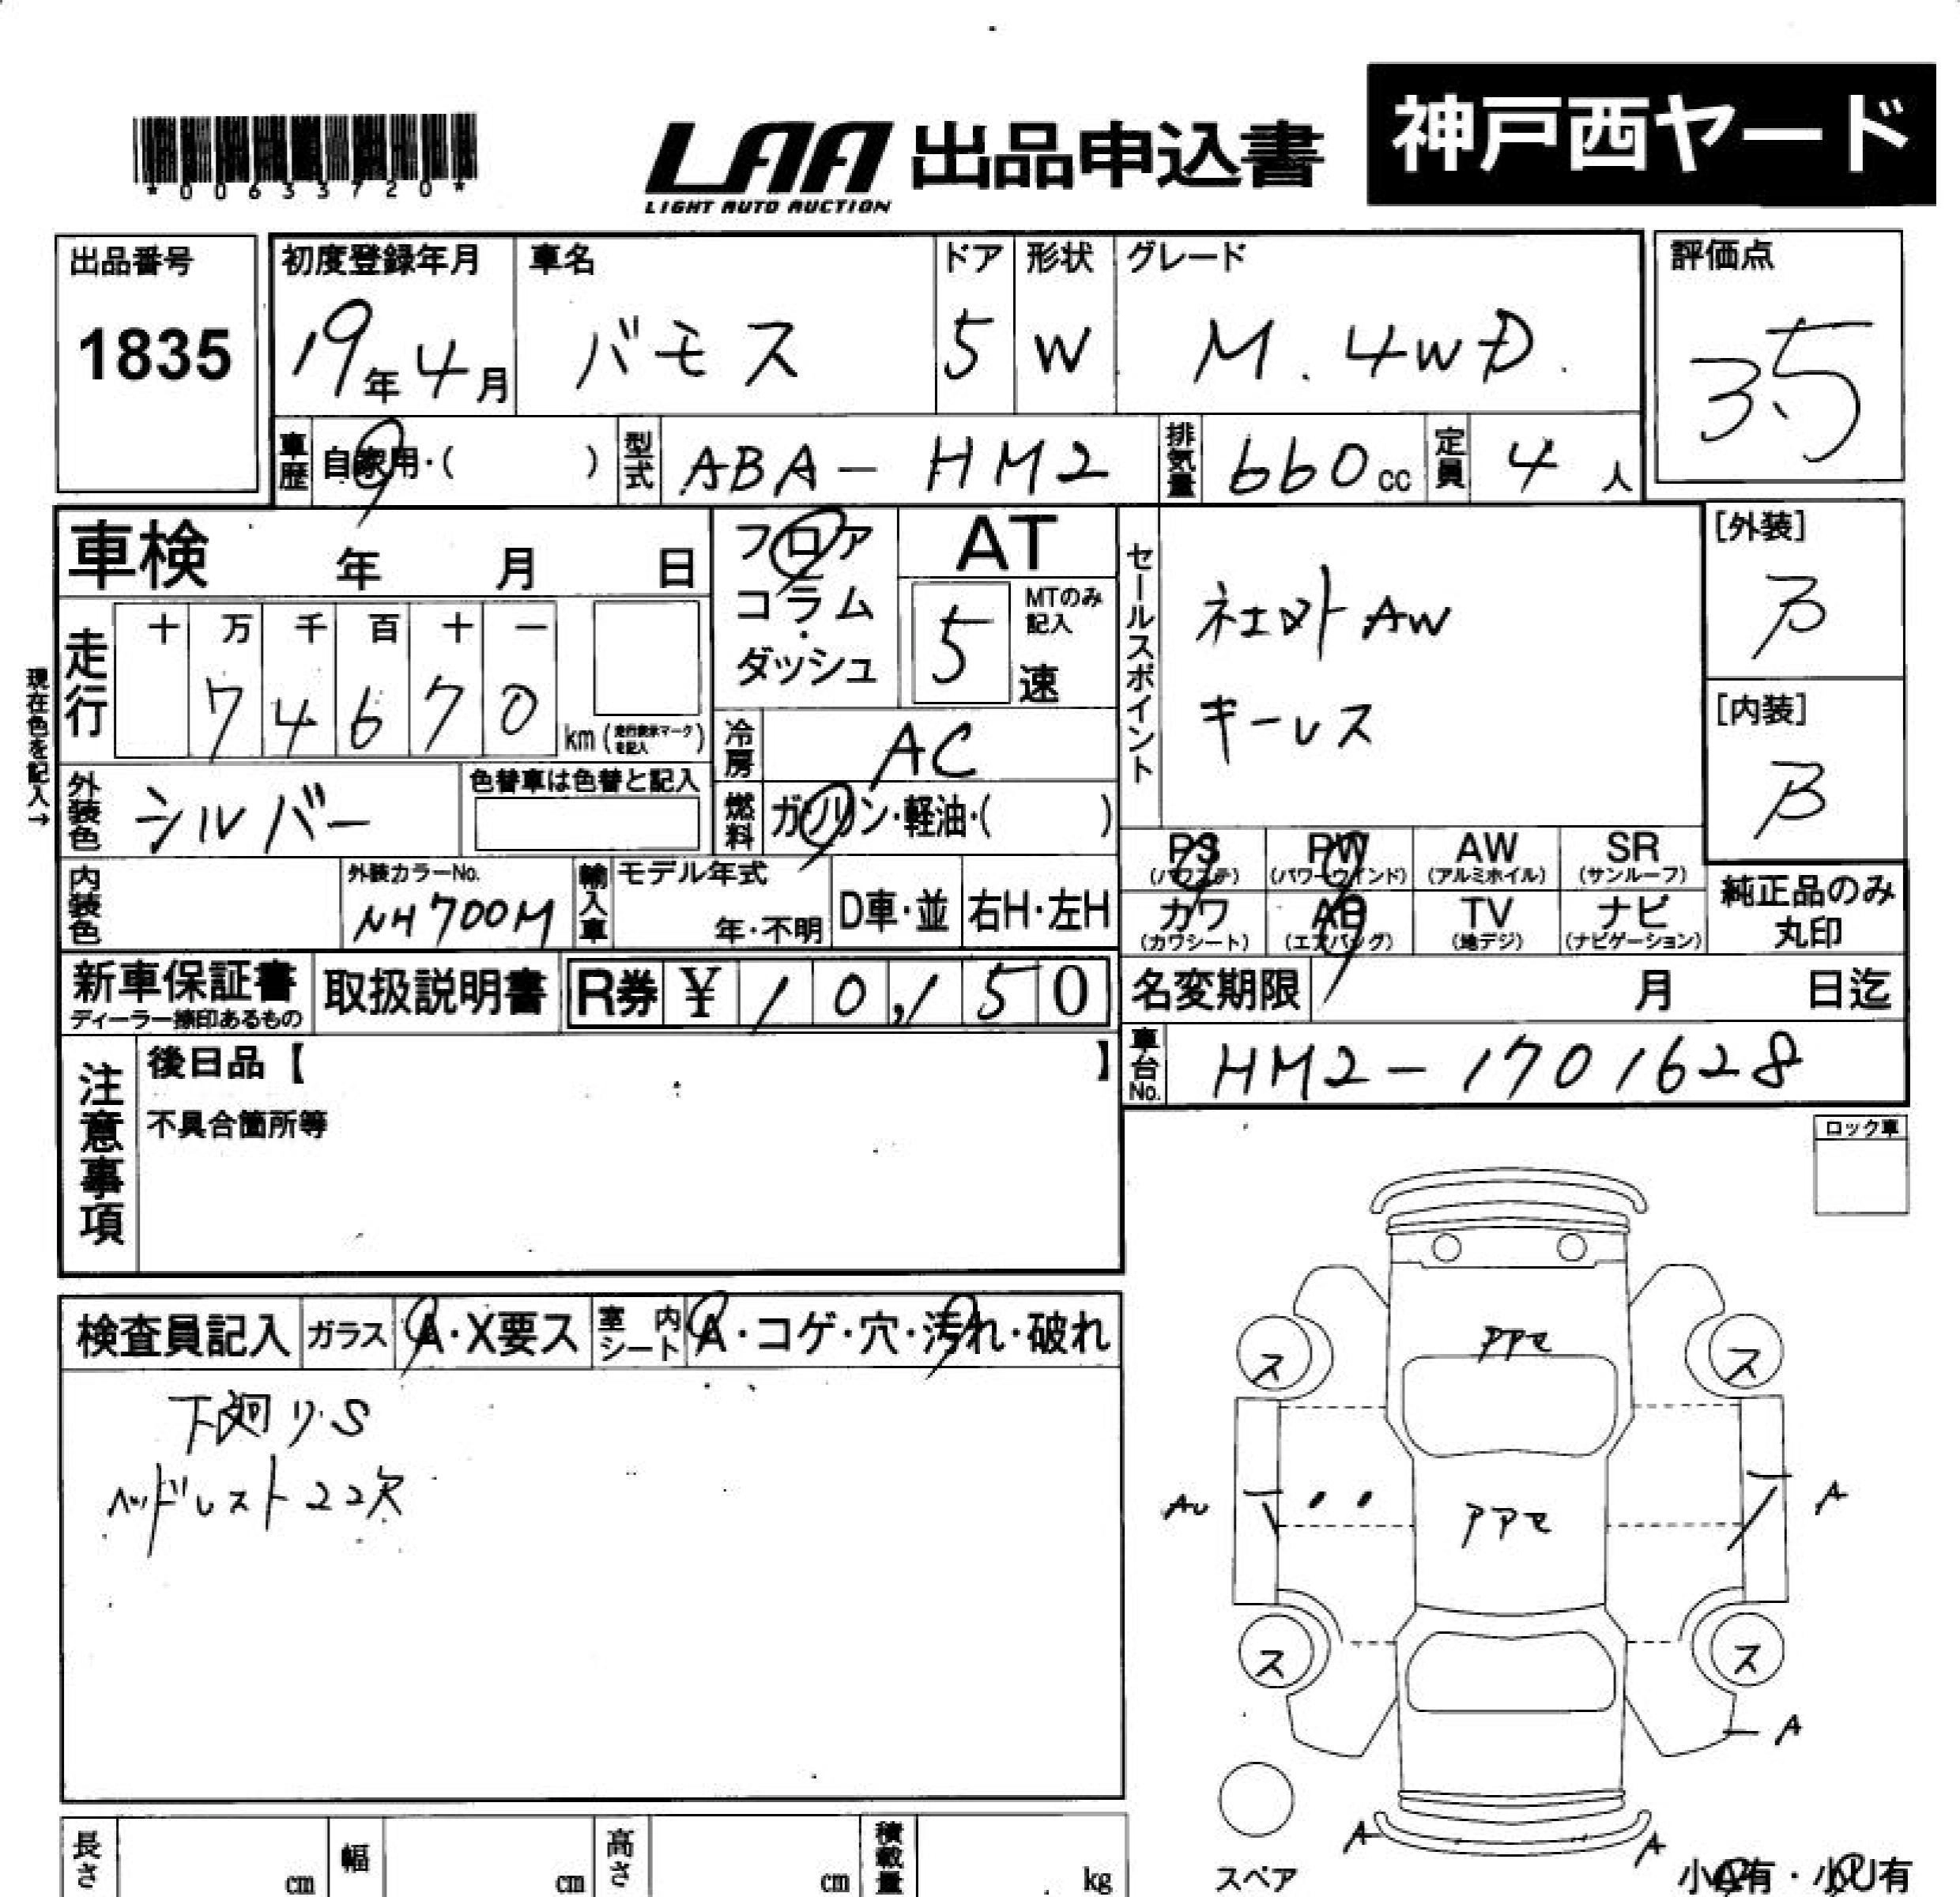 *00633720*
LAA 出品申込書
LIGHT AUTO AUCTION
神戸西ヤード
出品番号
1835
初度登録年月
19年4月
車名
バモス
ドア
5
形状
W
グレード
M.4WD.
評価点
3.5
車歴
自家用・( )
型式
ABA-HM2
排気量
660cc
定員
4人
車検 年 月 日
フロア
コラム
・
ダッシュ
AT
5
MTのみ記入
速
セールスポイント
社外AW
キーレス
[外装]
B
[内装]
B
現在色を記入→
走行
十 万 千 百 十 一
7 4 6 7 0
km (走行表示マークを記入)
冷房
AC
外装色
シルバー
色替車は色替と記入
燃料
ガソリン・軽油・( )
内装色
外装カラーNo.
NH700M
輸入車
モデル年式
年・不明
D車・並
右H・左H
PS
(パワステ)
PW
(パワーウインド)
AW
(アルミホイル)
SR
(サンルーフ)
カワ
(カワシート)
AB
(エアバッグ)
TV
(地デジ)
ナビ
(ナビゲーション)
純正品のみ
丸印
新車保証書
ディーラー捺印あるもの
取扱説明書
R券 ¥ 10,150
名変期限 月 日迄
車台No.
HM2-1701628
注意事項
後日品【 】
不具合箇所等
ロック車
検査員記入
ガラス
A・X要ス
室内シート
A・コゲ・穴・汚れ・破れ
下廻りS
ヘッドレスト22欠
アアセ
ス
ス
AU
アアセ
A
ス
ス
A
A
A
スペア
小A有・小U有
長さ cm
幅 cm
高さ cm
積載量 kg